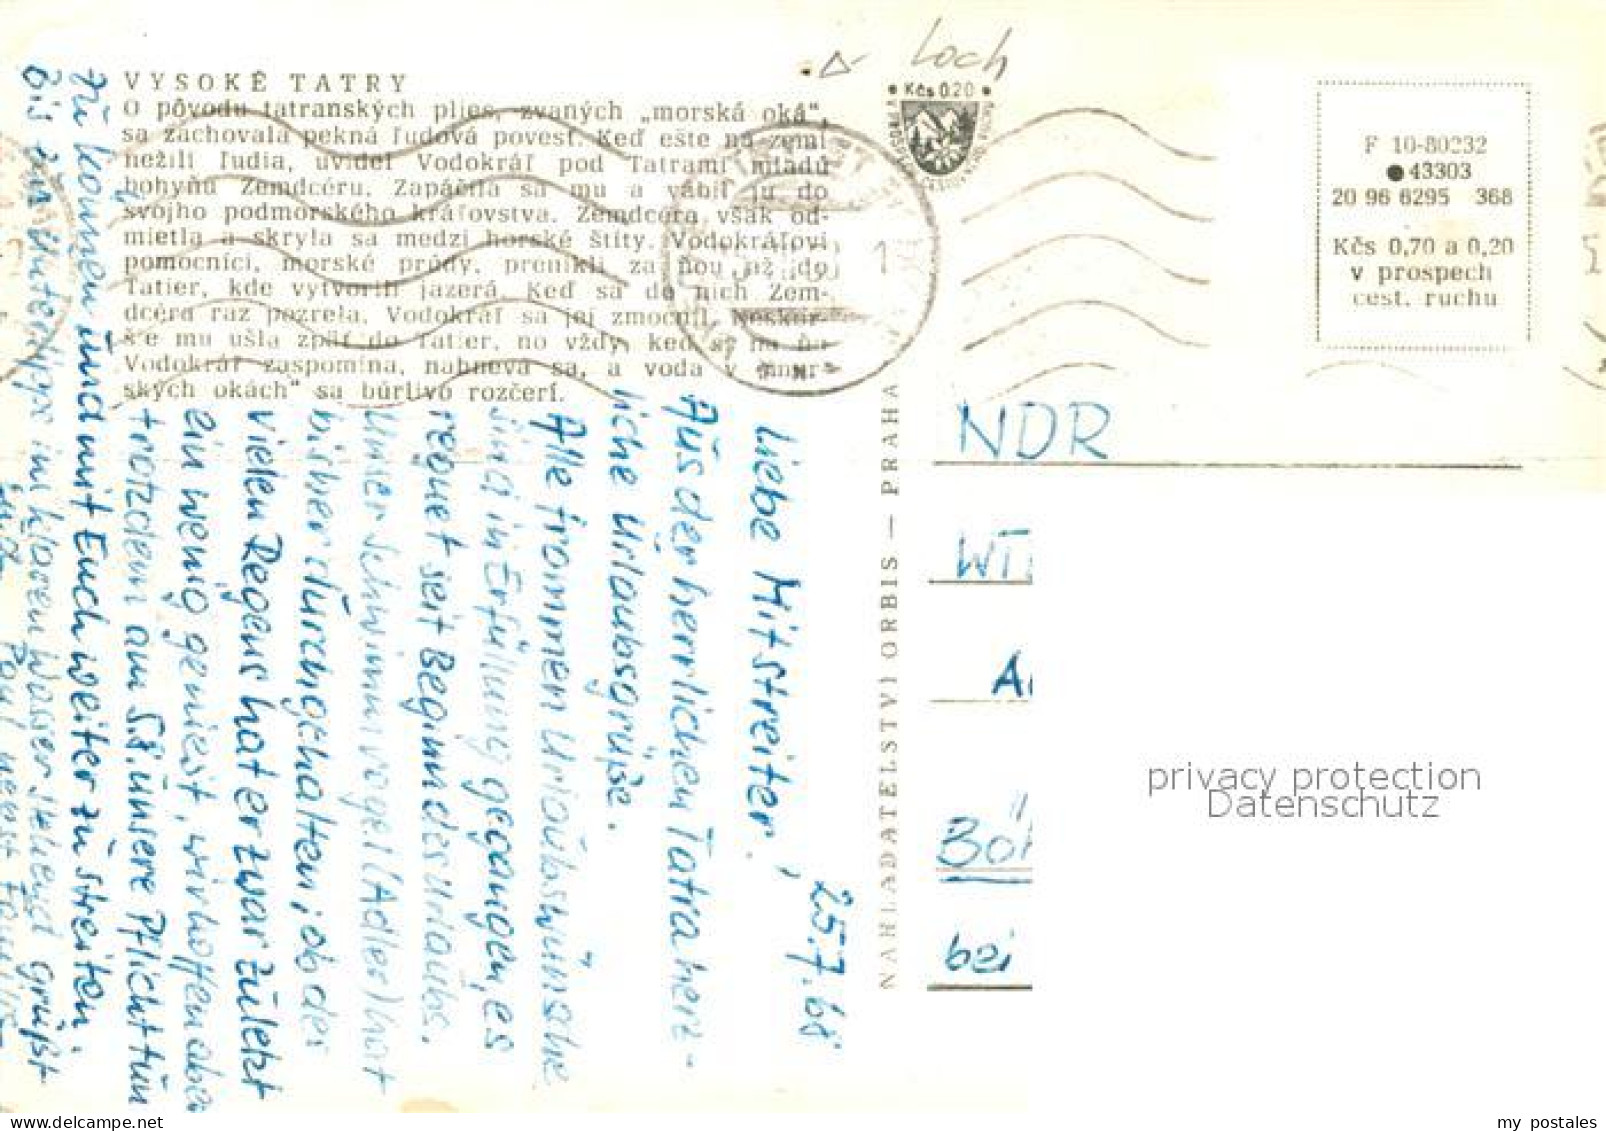 VYSOKÉ TATRY
O pôvodu tatranských plies, zvaných „morská oká“,
sa zachovala pekná ľudová povesť. Keď ešte na zemi
nežili ľudia, uvidel Vodokráľ pod Tatrami mladú
bohyňu Zemdcéru. Zapáčila sa mu a vábil ju do
svojho podmorského kráľovstva. Zemdcéra však od-
mietla a skryla sa medzi horské štíty. Vodokráľovi
pomocníci, morské prúdy, prenikli za ňou až do
Tatier, kde vytvorili jazerá. Keď sa do nich Zem-
dcéra raz pozrela, Vodokráľ sa jej zmocnil. Neskôr-
šie mu ušla zpäť do Tatier, no vždy, keď si na ňu
Vodokráľ zaspomína, nahnevá sa, a voda v „mor-
ských okách“ sa búrlivo rozčerí.
Loch
Kčs 0.20
F 10-80232
43303
20 96 6295 368
Kčs 0,70 a 0,20
v prospech
cest. ruchu
25.7.68
Liebe Mitstreiter,
Aus der herrlichen Tatra herz-
liche Urlaubsgrüße.
Alle frommen Urlaubswünsche
sind in Erfüllung gegangen, es
regnet seit Beginn des Urlaubs.
Unser Schwimmvogel (Adler) hat
bisher durchgehalten, ob des
vielen Regens hat er zwar zuletzt
ein wenig geniest, wir hoffen aber
trotzdem am 5.8. unsere Pflicht tun
zu können und mit Euch weiter zu streiten.
Bis zum Unterleib im klaren Wasser stehend grüßt
Paul nebst Familie
NAKLADATELSTVÍ ORBIS — PRAHA
NDR
bei
privacy protection
Datenschutz
my postales